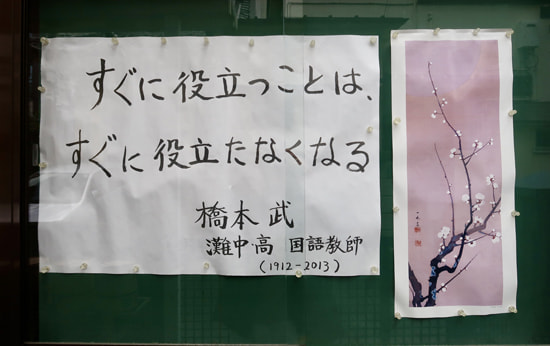 すぐに役立つことは、
すぐに役立たなくなる
橋本武
灘中・高 国語教師
(1912-2013)